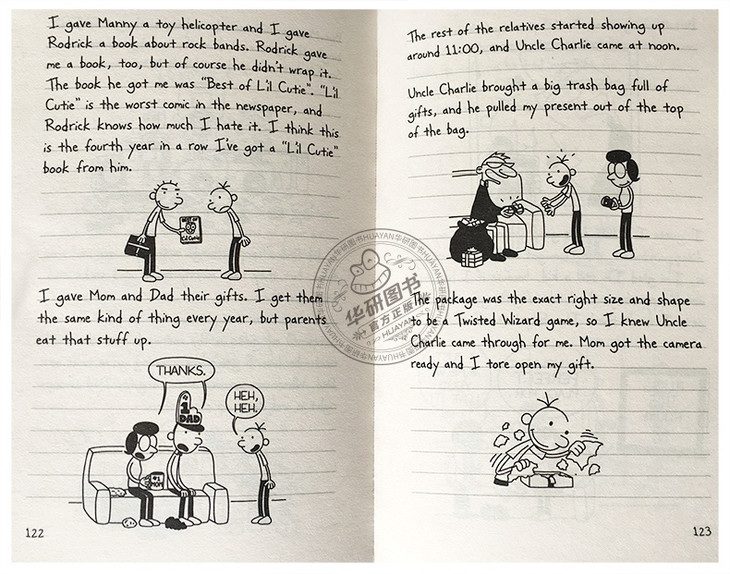 I gave Manny a toy helicopter and I gave
Rodrick a book about rock bands. Rodrick gave
me a book, too, but of course he didn't wrap it.
The book he got me was "Best of L'il Cutie". "L'il
Cutie" is the worst comic in the newspaper, and
Rodrick knows how much I hate it. I think this
is the fourth year in a row I've got a "L'il Cutie"
book from him.
BEST OF
L'il Cutie
I gave Mom and Dad their gifts. I get them
the same kind of thing every year, but parents
eat that stuff up.
THANKS.
#1
DAD
HEH,
HEH.
#1
MOM
122
The rest of the relatives started showing up
around 11:00, and Uncle Charlie came at noon.
Uncle Charlie brought a big trash bag full of
gifts, and he pulled my present out of the top
of the bag.
The package was the exact right size and shape
to be a Twisted Wizard game, so I knew Uncle
Charlie came through for me. Mom got the camera
ready and I tore open my gift.
123
华研图书
官方正版
HUAYAN华研图书HUAYAN华研图书